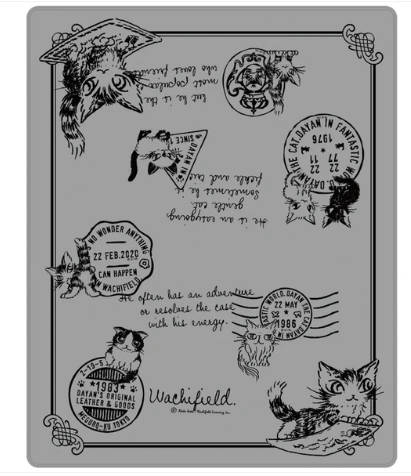 but he is the
most popular
who loves friends
DAYAN IN
SINCE
THE CAT, DAYAN IN FANTASTIC WORLD, DAYAN
22 22
11 77
1976
He is an easygoing,
gentle cat.
Sometimes he is
fickle and
NO WONDER ANYTHING
22 FEB.2020
CAN HAPPEN
WACHIFIELD
He often has an adventure
or resolves the case
with his energy.
TASTIC WORLD, DAYAN THE CAT, DAYAN IN
22 MAY
1986
2-19-5
1983
DAYAN'S ORIGINAL
LEATHER & GOODS
MEGURO-KU TOKYO
Wachifield.